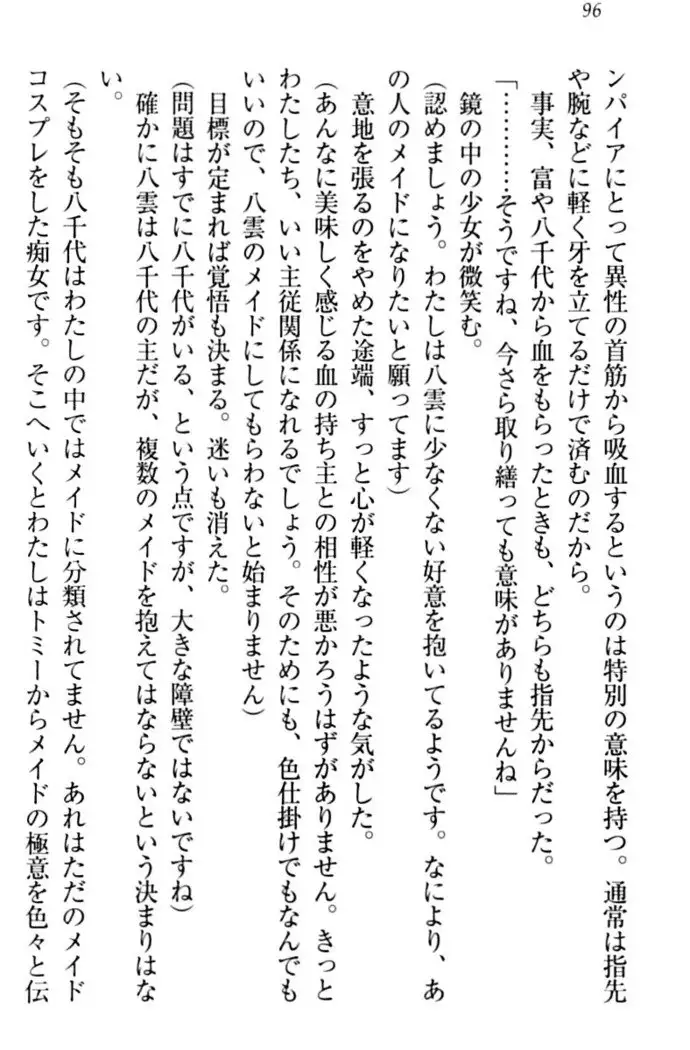 96
ンパイアにとって異性の首筋から吸血するというのは特別の意味を持つ。通常は指先
や腕などに軽く牙を立てるだけで済むのだから。
事実、富や八千代から血をもらったときも、どちらも指先からだった。
「…………そうですね、今さら取り繕っても意味がありませんね」
鏡の中の少女が微笑む。
(認めましょう。わたしは八雲に少なくない好意を抱いてるようです。なにより、あ
の人のメイドになりたいと願ってます)
意地を張るのをやめた途端、すっと心が軽くなったような気がした。
(あんなに美味しく感じる血の持ち主との相性が悪かろうはずがありません。きっと
わたしたち、いい主従関係になれるでしょう。そのためにも、色仕掛けでもなんでも
いいので、八雲のメイドにしてもらわないと始まりません)
目標が定まれば覚悟も決まる。迷いも消えた。
(問題はすでに八千代がいる、という点ですが、大きな障壁ではないですね)
確かに八雲は八千代の主だが、複数のメイドを抱えてはならないという決まりはな
い。
(そもそも八千代はわたしの中ではメイドに分類されてません。あれはただのメイド
コスプレをした痴女です。そこへいくとわたしはトミーからメイドの極意を色々と伝